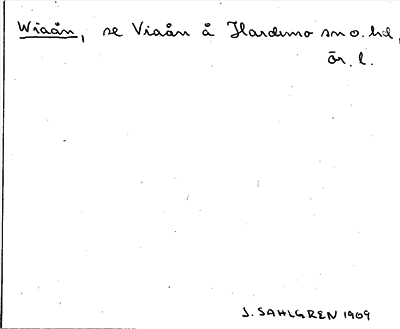 Wiaån, se Viaån å Hardemo sn o. hd,
Ör. l.
J. SAHLGREN 1909